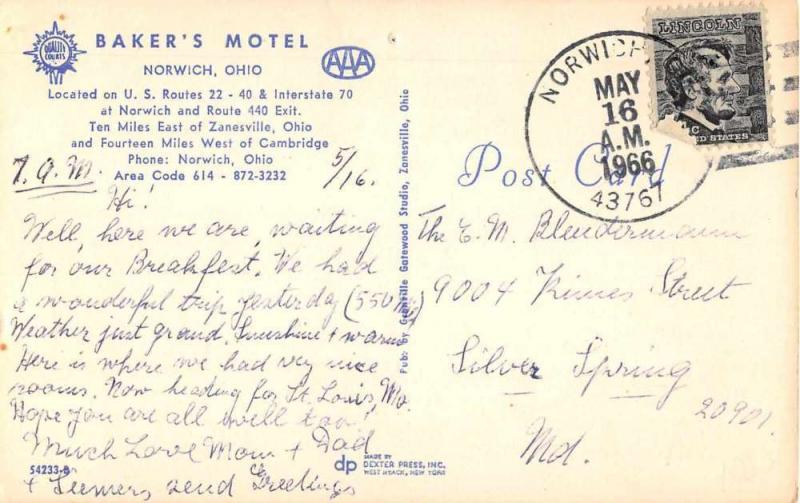 QUALITY COURTS
BAKER'S MOTEL
AAA
NORWICH, OHIO
Located on U. S. Routes 22 - 40 & Interstate 70
at Norwich and Route 440 Exit.
Ten Miles East of Zanesville, Ohio
and Fourteen Miles West of Cambridge
Phone: Norwich, Ohio
Area Code 614 - 872-3232
7. A.M.
5/16.
Hi!
Well, here we are, waiting
for our Breakfest. We had
a wonderful trip yesterday (550
Weather just grand. Sunshine + warm
Here is where we had very nice
rooms. Now heading for St. Louis, Mo.
Hope you are all well too!
Much Love Mom + Dad
+ send Greetings
54233-B
Pub. by Granville Gatewood Studio, Zanesville, Ohio
dp
MADE BY
DEXTER PRESS, INC.
WEST NYACK, NEW YORK
Post Card
NORWICH
MAY
16
A.M.
1966
43767
LINCOLN
ED STATES
The E. M. Blendermann
9004 Street
Silver Spring
20901.
Md.